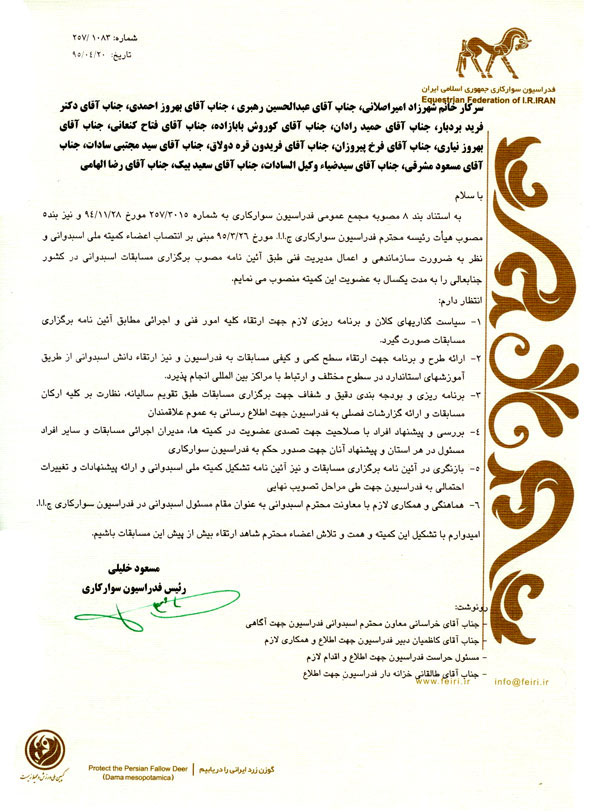 شماره: ۲۵۷/۱۰۸۳
تاریخ: ۹۵/۰۴/۲۰
فدراسیون سوارکاری جمهوری اسلامی ایران
Equestrian Federation of I.R.IRAN
سرکار خانم شهرزاد امیراصلانی، جناب آقای عبدالحسین رهبری ، جناب آقای بهروز احمدی، جناب آقای دکتر
فرید بردبار، جناب آقای حمید رادان، جناب آقای کوروش بابازاده، جناب آقای فتاح کنعانی، جناب آقای
بهروز نیاری، جناب آقای فرخ پیروزان، جناب آقای فریدون قره دولاق، جناب آقای سید مجتبی سادات، جناب
آقای مسعود مشرقی، جناب آقای سیدضیاء وکیل السادات، جناب آقای سعید بیک، جناب آقای رضا الهامی
با سلام
به استناد بند ۸ مصوبه مجمع عمومی فدراسیون سوارکاری به شماره ۲۵۷/۳۰۱۵ مورخ ۹۴/۱۱/۲۸ و نیز بند۵
مصوب هیأت رئیسه محترم فدراسیون سوارکاری ج.ا.ا. مورخ ۹۵/۳/۲۶ مبنی بر انتصاب اعضاء کمیته ملی اسبدوانی و
نظر به ضرورت سازماندهی و اعمال مدیریت فنی طبق آئین نامه مصوب برگزاری مسابقات اسبدوانی در کشور
جنابعالی را به مدت یکسال به عضویت این کمیته منصوب می نمایم.
انتظار دارم:
۱- سیاست گذاریهای کلان و برنامه ریزی لازم جهت ارتقاء کلیه امور فنی و اجرائی مطابق آئین نامه برگزاری
مسابقات صورت گیرد.
۲- ارائه طرح و برنامه جهت ارتقاء سطح کمی و کیفی مسابقات به فدراسیون و نیز ارتقاء دانش اسبدوانی از طریق
آموزشهای استاندارد در سطوح مختلف و ارتباط با مراکز بین المللی انجام پذیرد.
۳- برنامه ریزی و بودجه بندی دقیق و شفاف جهت برگزاری مسابقات طبق تقویم سالیانه، نظارت بر کلیه ارکان
مسابقات و ارائه گزارشات فصلی به فدراسیون جهت اطلاع رسانی به عموم علاقمندان
۴- بررسی و پیشنهاد افراد با صلاحیت جهت تصدی عضویت در کمیته ها، مدیران اجرائی مسابقات و سایر افراد
مسئول در هر استان و پیشنهاد آنان جهت صدور حکم به فدراسیون سوارکاری
۵- بازنگری در آئین نامه برگزاری مسابقات و نیز آئین نامه تشکیل کمیته ملی اسبدوانی و ارائه پیشنهادات و تغییرات
احتمالی به فدراسیون جهت طی مراحل تصویب نهایی
۶- هماهنگی و همکاری لازم با معاونت محترم اسبدوانی به عنوان مقام مسئول اسبدوانی در فدراسیون سوارکاری ج.ا.ا.
امیدوارم با تشکیل این کمیته و همت و تلاش اعضاء محترم شاهد ارتقاء بیش از پیش این مسابقات باشیم.
مسعود خلیلی
رئیس فدراسیون سوارکاری
رونوشت:
- جناب آقای خراسانی معاون محترم اسبدوانی فدراسیون جهت آگاهی
- جناب آقای کاظمیان دبیر فدراسیون جهت اطلاع و همکاری لازم
- مسئول حراست فدراسیون جهت اطلاع و اقدام لازم
- جناب آقای طالقانی خزانه دار فدراسیون جهت اطلاع
www.feiri.ir info@feiri.ir
Protect the Persian Fallow Deer
(Dama mesopotamica)
گوزن زرد ایرانی را دریابیم